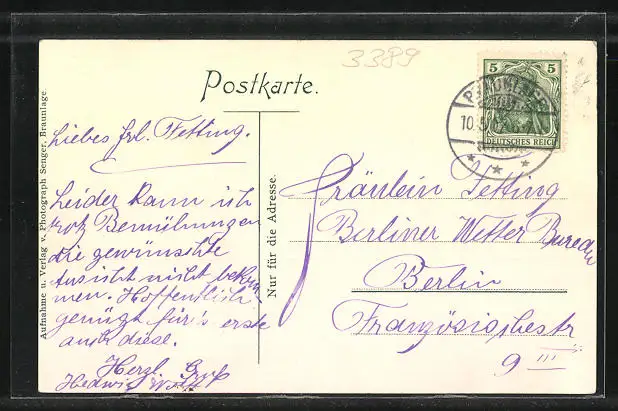 3389
Postkarte.
5 5
DEUTSCHES REICH
10.5
Aufnahme u. Verlag v. Photograph Senger, Braunlage.
Nur für die Adresse.
Liebes Frl. Fetting.
Leider kann ich
trotz Bemühungen
die gewünschte
Ansicht nicht bekom-
men. Hoffentlich
genügt für's erste
auch diese.
Herzl. Gruß
Hedwig
Fräulein Fetting
Berliner Wetter Bureau
Berlin
Französischestr
9 III